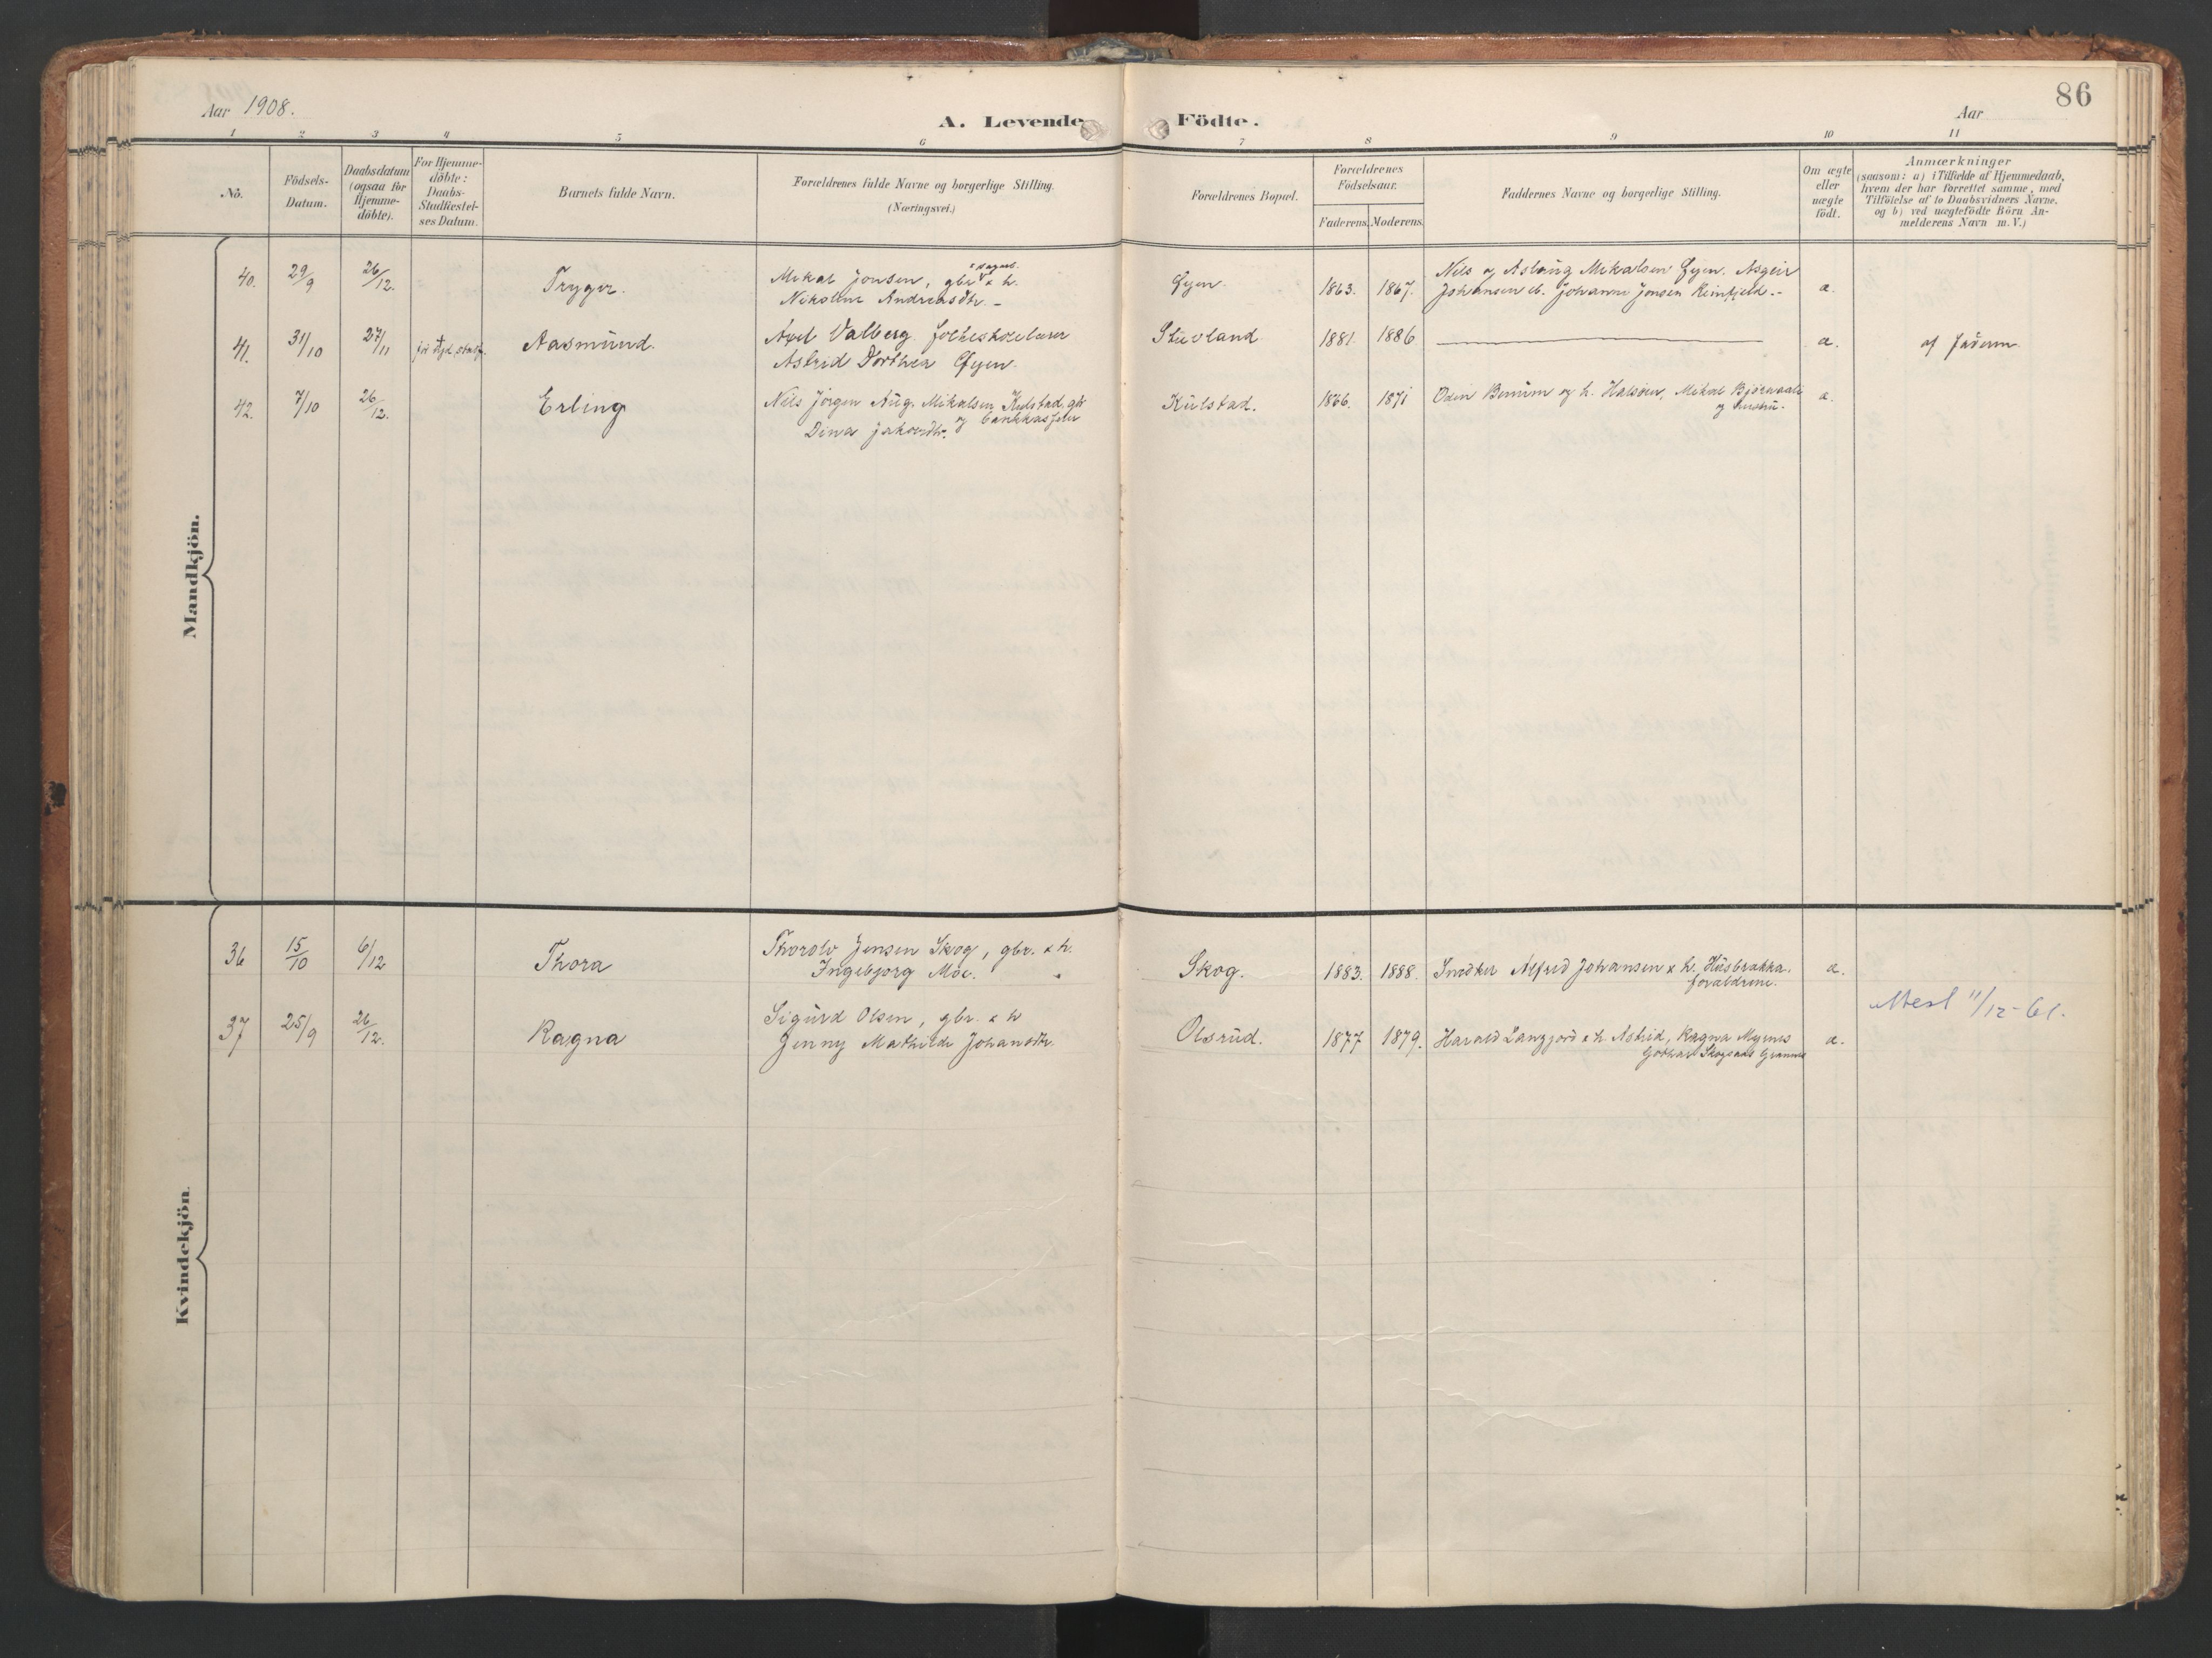 Aar 1908.
A. Levende Födte.
Aar
86
1 2 3 4 5 6 7 8 9 10 11
No.
Födsels-
Datum.
Daabsdatum
(ogsaa for
Hjemme-
döbte).
For Hjemme-
döbte:
Daabs-
Stadfæstel-
ses Datum.
Barnets fulde Navn.
Forældrenes fulde Navne og borgerlige Stilling.
(Næringsvei.)
Forældrenes Bopæl.
Forældrenes
Födselsaar.
Faderens. Moderens.
Faddernes Navne og borgerlige Stilling.
Om ægte
eller
uægte
födt.
Anmærkninger
(saasom: a) i Tilfælde af Hjemmedaab,
hvem der har forrettet samme, med
Tilföielse af to Daabsvidners Navne.
og b) ved uægtefödte Börn An-
melderens Navn m.V.)
Mandkjön.
40. 29/9 26/12. Trygve.
Mikal Jonsen, gbr. & h.
Nikoline Andreasdtr. -
Øyen. 1863. 1867.
Nils og Aslaug Mikalsen Øyen. Asgeir
Johansen eb. Johanne Jonsen Reinfjeld. -
a.
41. 31/10 27/11 Aasmund.
Axel Valberg folkeskolelærer
Astrid Dorthea Øyen.
Stuvland 1881. 1886 a. af faderen
42. 7/10 26/12. Erling
Nils Jörgen Aug. Mikalsen Kulstad, gbr
og bankkasserer
Dina Jakobsdtr.
Kulstad. 1866. 1871
Odin Benum og h. Halsöen, Mikal Bjönnaali
og hustru.
a.
Kvindekjön.
36 15/10 6/12 Thora
Thorolv Jensen Skog, gbr. & h.
Ingebjorg Moe. "
Skog. 1883. 1888.
Snedker Alfred Johansen & h. Husbrakka.
forældrene.
a.
Attest 11/12-61.
37 25/9 26/12. Ragna
Sigurd Olsen, gbr. & h
Jenny Mathilde Johansdtr.
Olsrud. 1877 1879.
Harald Langjord & h. Astrid, Ragna Myrnes
Skogsaas
a.